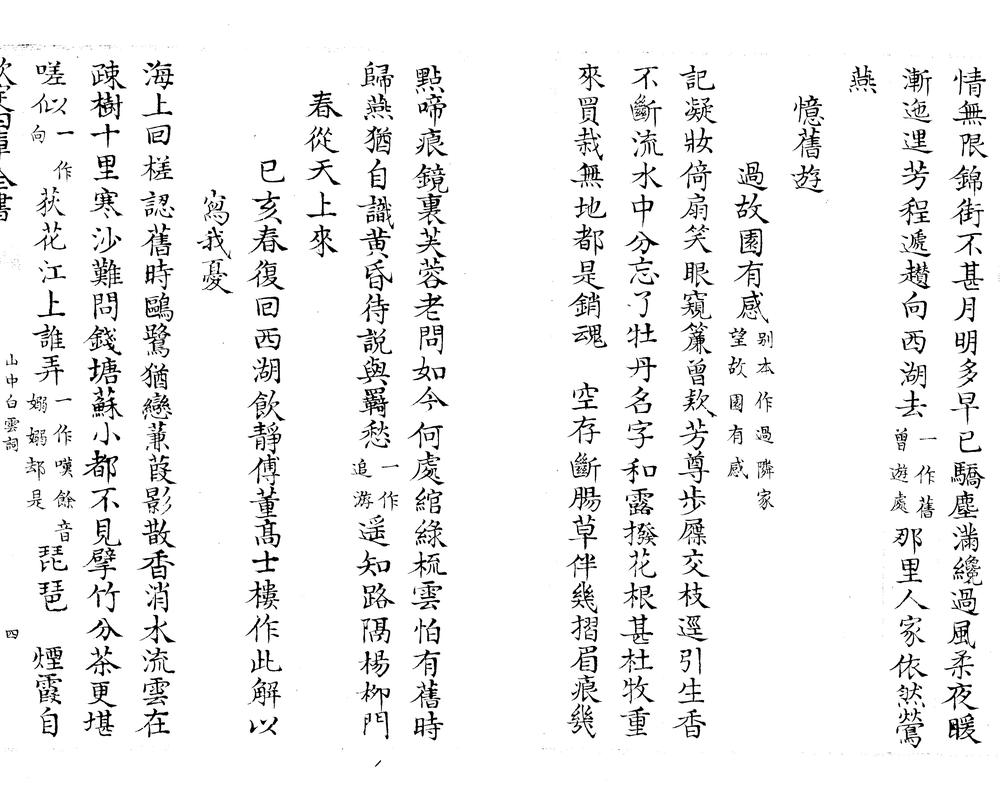 情無限錦街不甚月明多早已驕塵滿纔過風柔夜暖
漸迤逦芳程遞趲向西湖去一作舊曽遊處那里人家依然鶯
燕
憶舊遊
過故園有感别本作過隣家望故園有感
記凝妝倚扇笑眼窺簾曾欵芳尊步屧交枝逕引生香
不斷流水中分忘了牡丹名字和露撥花根甚杜牧重
來買栽無地都是銷魂　空存斷腸草伴幾摺眉痕幾
點啼痕鏡裏芙蓉老問如今何處綰綠梳雲怕有舊時
歸燕猶自識黄昏待説與羇愁一作追游遥知路隅楊柳門
春從天上來
已亥春復回西湖飲靜傅董髙士樓作此解以
寫我憂
海上回槎認舊時鷗鷺猶戀蒹葭影散香消水流雲在
疎樹十里寒沙難問錢塘蘇小都不見擘竹分茶更堪
嗟似一作向荻花江上誰弄一作嘆餘音嫋嫋都是琵琶　煙霞自
山中白雲詞
四
欽定四庫全書